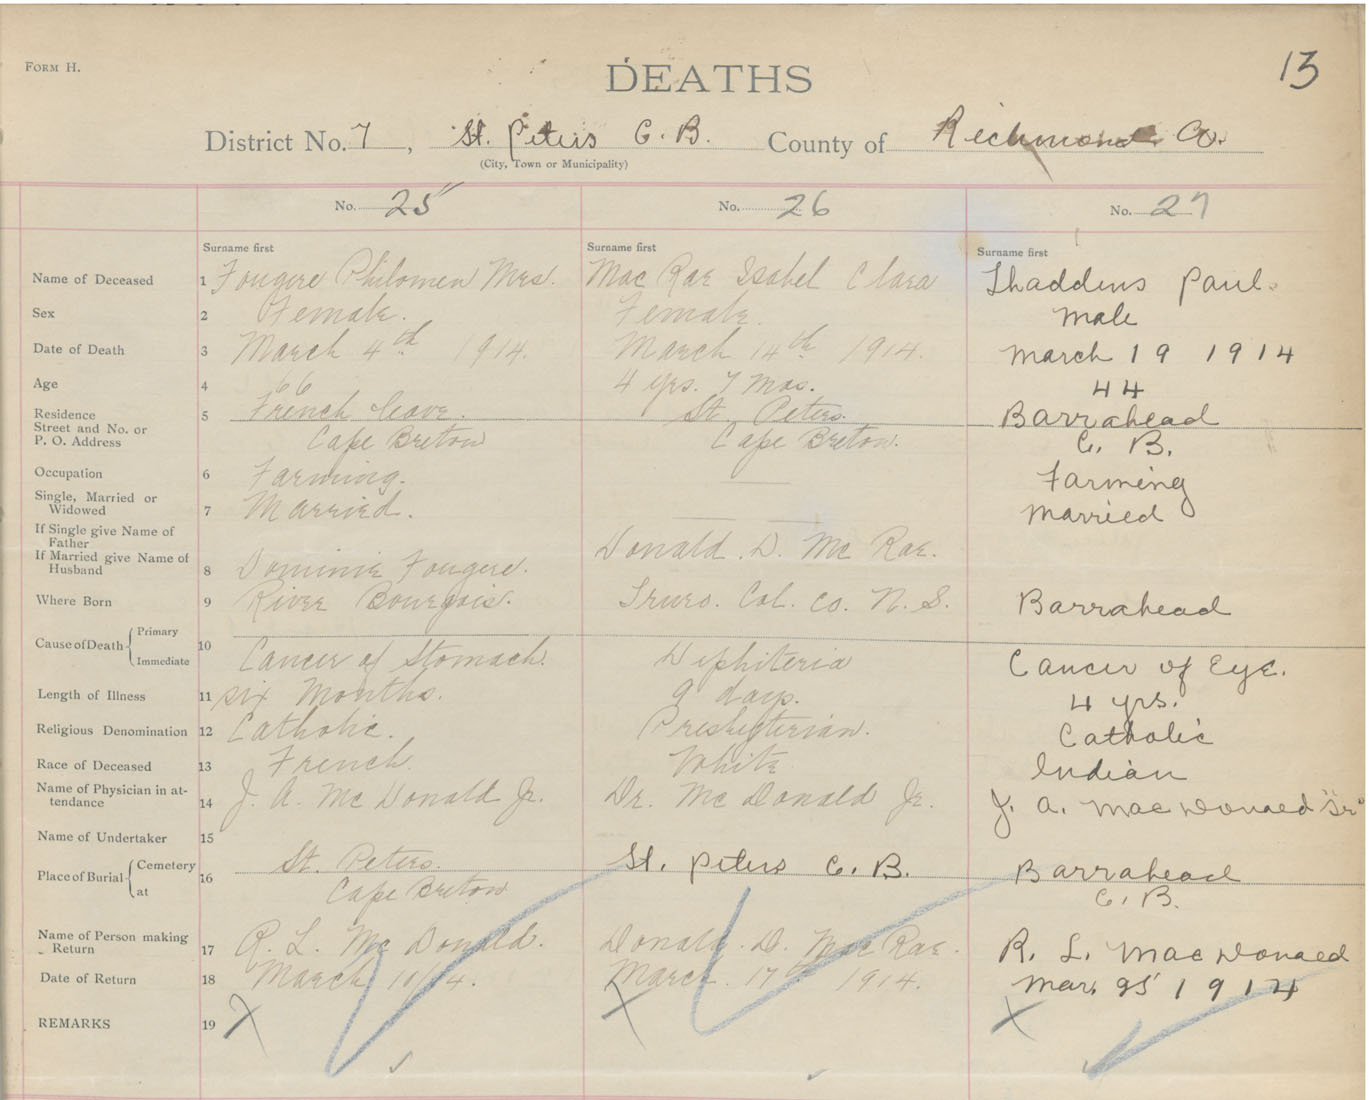 FORM H.
DEATHS
13
District No. 7, St. Peters C. B. County of Richmond Co.
(City, Town or Municipality)
No. 25 No. 26 No. 27
Surname first Surname first Surname first
Name of Deceased 1 Fougere Philomen Mrs. Mac Rae Isabel Clara Thaddeus Paul.
Sex 2 Female. Female. Male
Date of Death 3 March 4th 1914. March 14th 1914. March 19 1914
Age 4 66 4 yrs. 7 Mos. 44
Residence 5 French Cove. St. Peters. Barrahead
Street and No. or
P. O. Address Cape Breton Cape Breton. C. B.
Occupation 6 Farming. Farming
Single, Married or
Widowed 7 Married. Married
If Single give Name of
Father Donald D. Mc Rae.
If Married give Name of
Husband 8 Dominic Fougere.
Where Born 9 River Bourgois. Truro. Col. Co. N. S. Barrahead
Cause of Death { Primary 10
Immediate Cancer of Stomach. Diphiteria Cancer of Eye.
Length of Illness 11 six Months. 9 days. 4 yrs.
Religious Denomination 12 Catholic. Presbyterian. Catholic
Race of Deceased 13 French. White Indian
Name of Physician in at-
tendance 14 J. A. Mc Donald Jr. Dr. Mc Donald Jr. J. A. Mac Donald "Sr"
Name of Undertaker 15
Place of Burial { Cemetery 16 St. Peters. St. Peters C. B. Barrahead
at Cape Breton C. B.
Name of Person making
Return 17 R. L. Mc Donald. Donald. D. Mac Rae. R. L. Mac Donald
Date of Return 18 March 10/14. March 17th 1914. Mar. 25 1914
REMARKS 19 X X X